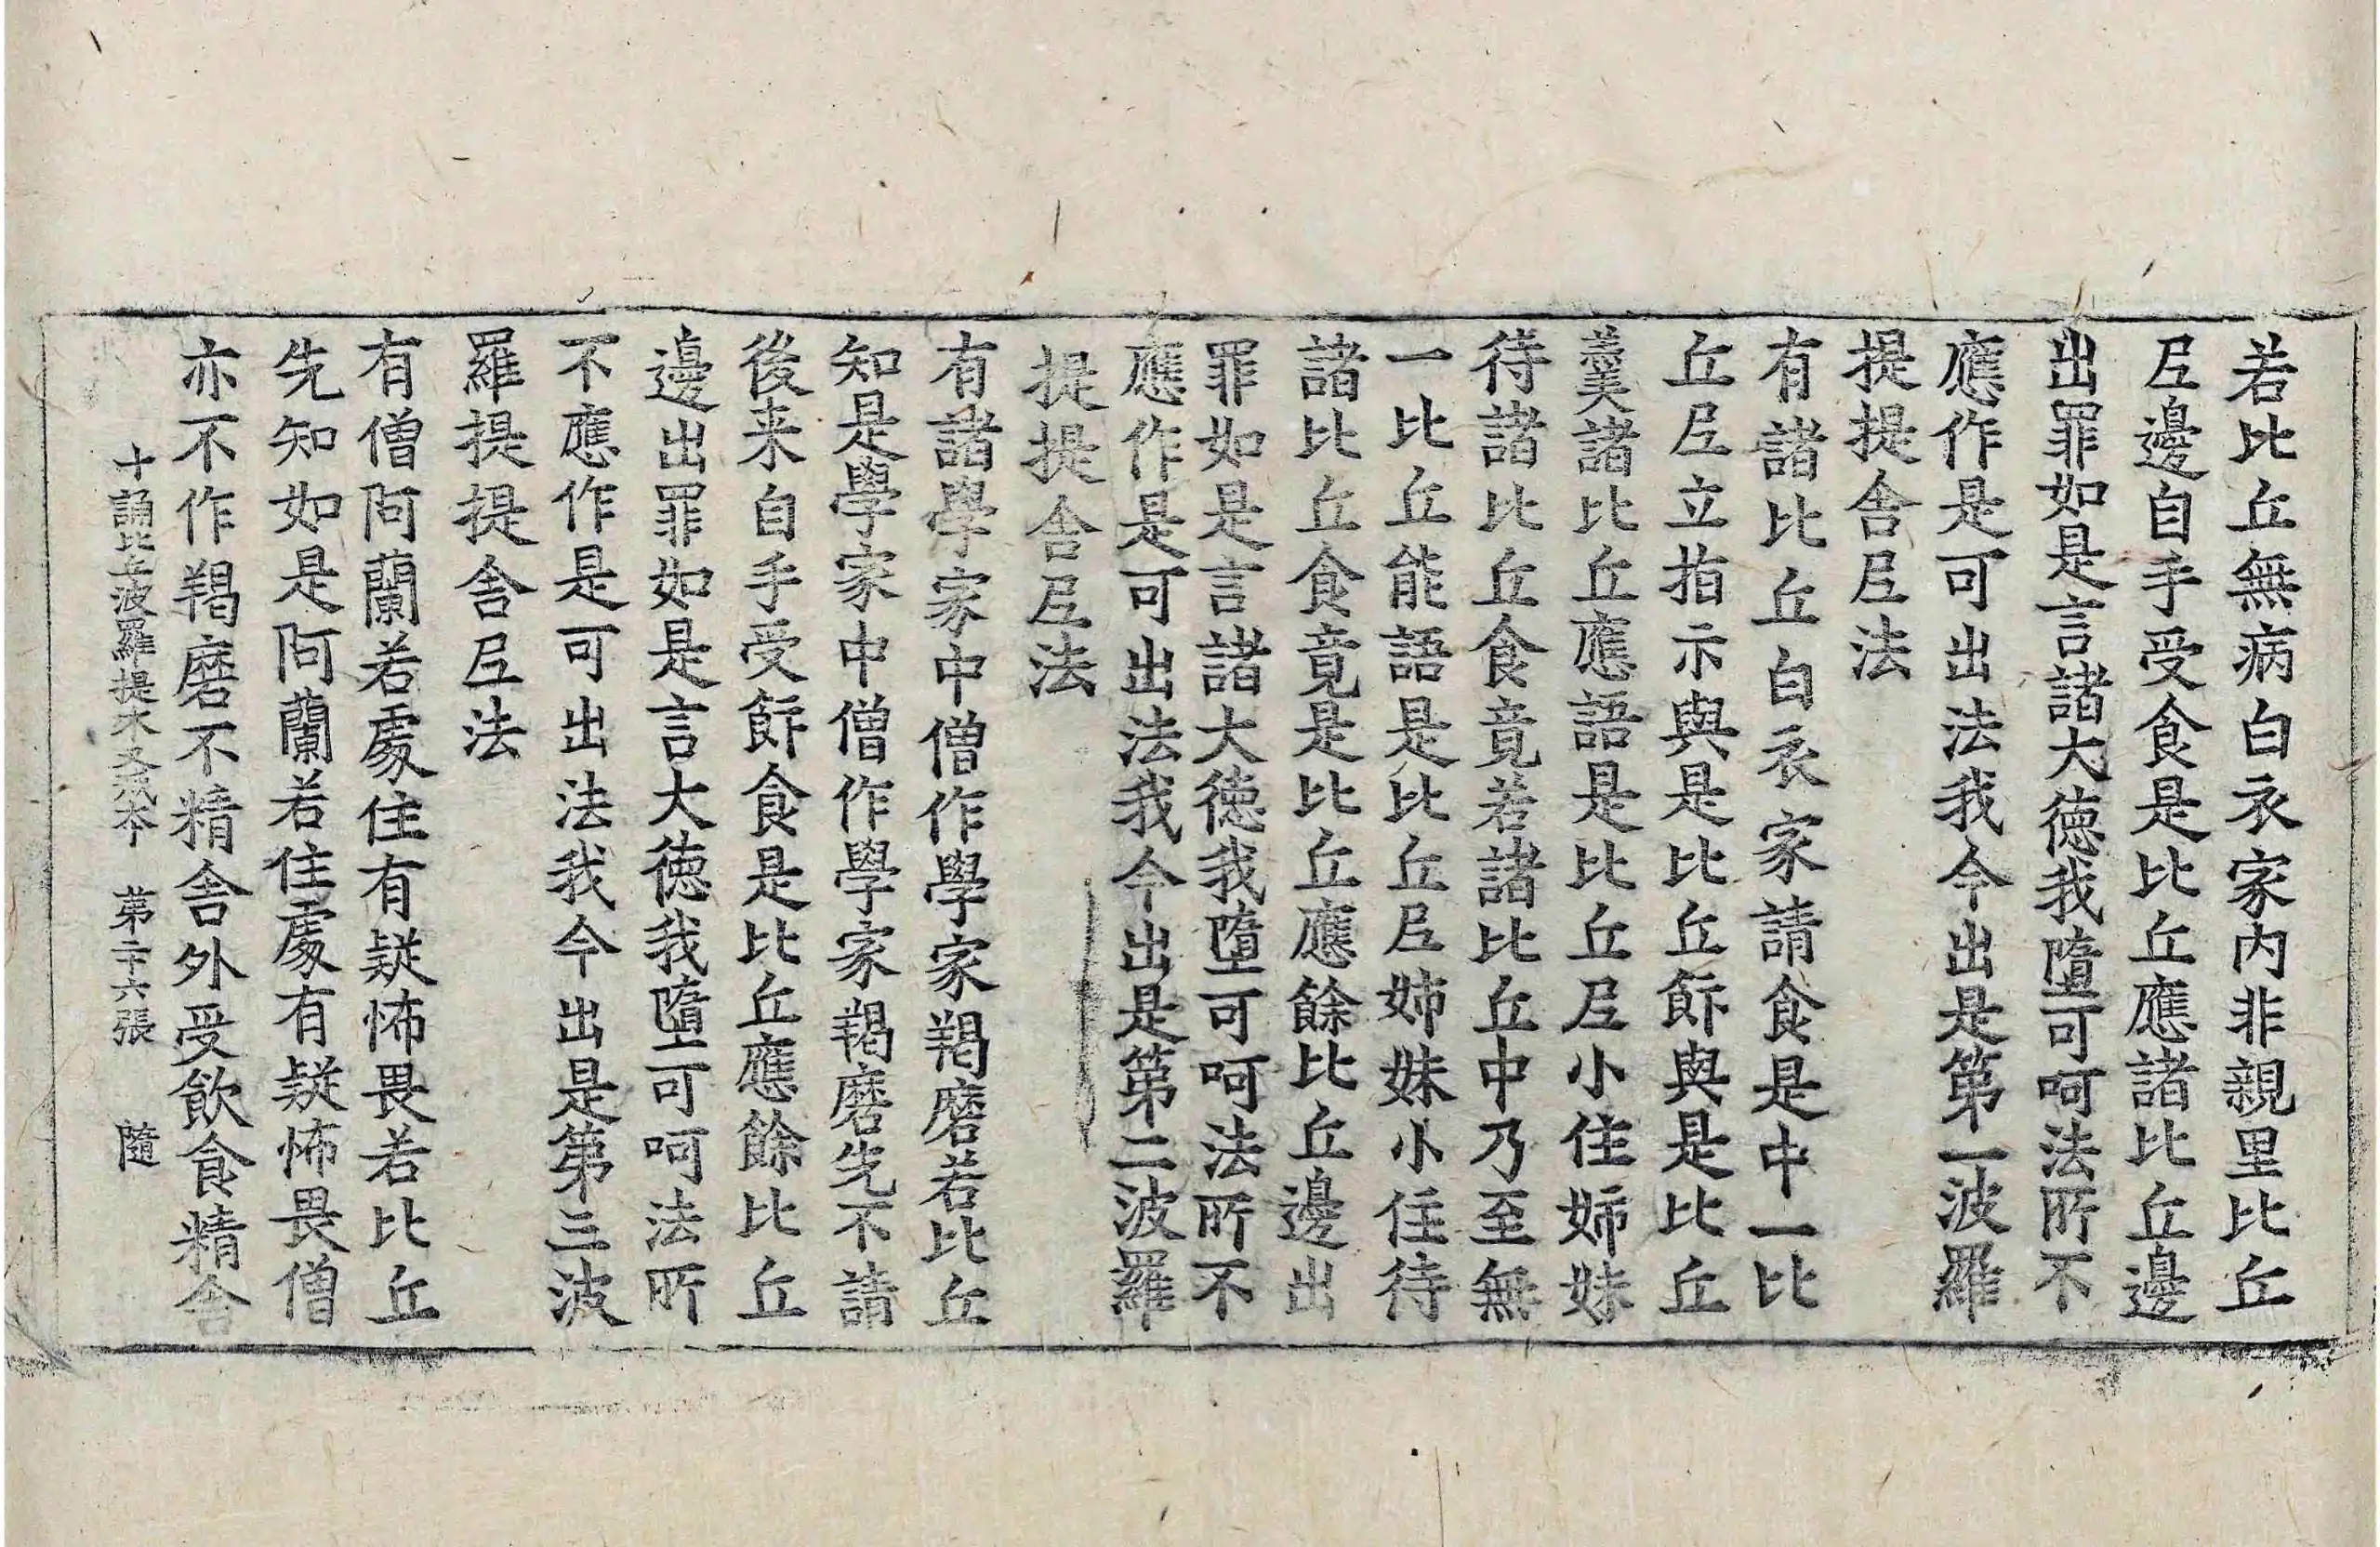 若比丘無病白衣家内非親里比丘
𡰱邊自手受食是比丘應諸比丘邊
出罪如是言諸大徳我墮可呵法所不
應作是可出法我今出是第一波羅
提提舍𡰱法
有諸比丘白衣家請食是中一比
丘𡰱立指示與是比丘飰與是比丘
羹諸比丘應語是比丘𡰱小住姉妹
待諸比丘食竟若諸比丘中乃至無
一比丘能語是比丘𡰱姉妹小住待
諸比丘食竟是比丘應餘比丘邊出
罪如是言諸大徳我墮可呵法所不
應作是可出法我今出是第二波羅
提提舍𡰱法
有諸學家中僧作學家羯磨若比丘
知是學家中僧作學家羯磨先不請
後来自手受飰食是比丘應餘比丘
邊出罪如是言大徳我墮可呵法所
不應作是可出法我今出是第三波
羅提提舍𡰱法
有僧阿蘭若處住有疑怖畏若比丘
先知如是阿蘭若住處有疑怖畏僧
亦不作羯磨不精舍外受飲食精舍
十誦比丘波羅提木叉戒本 第二十六張 隨